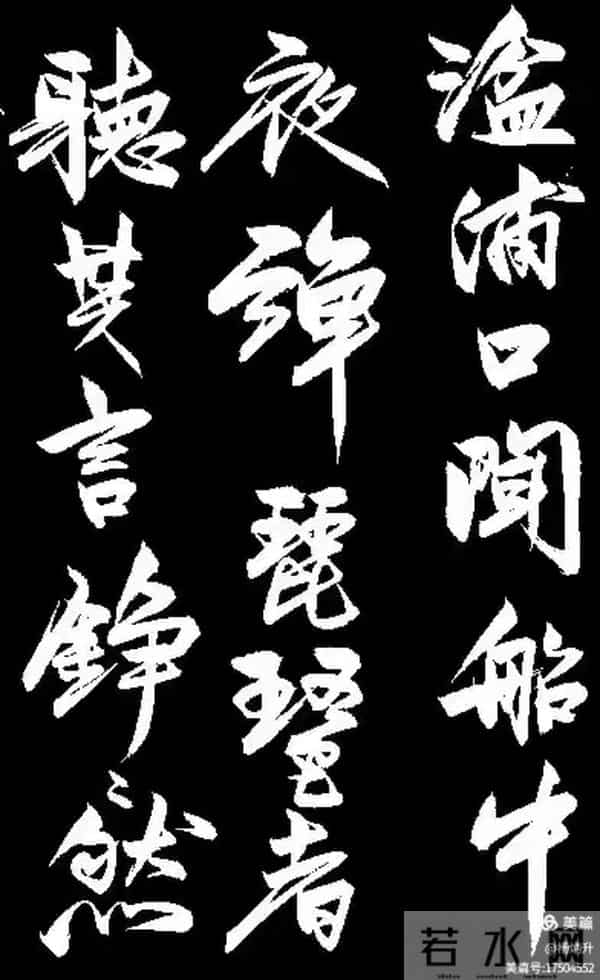 湓浦口聞船中
夜彈琵琶者
聽其言錚〻然
美篇
美篇号:17504552
若水网